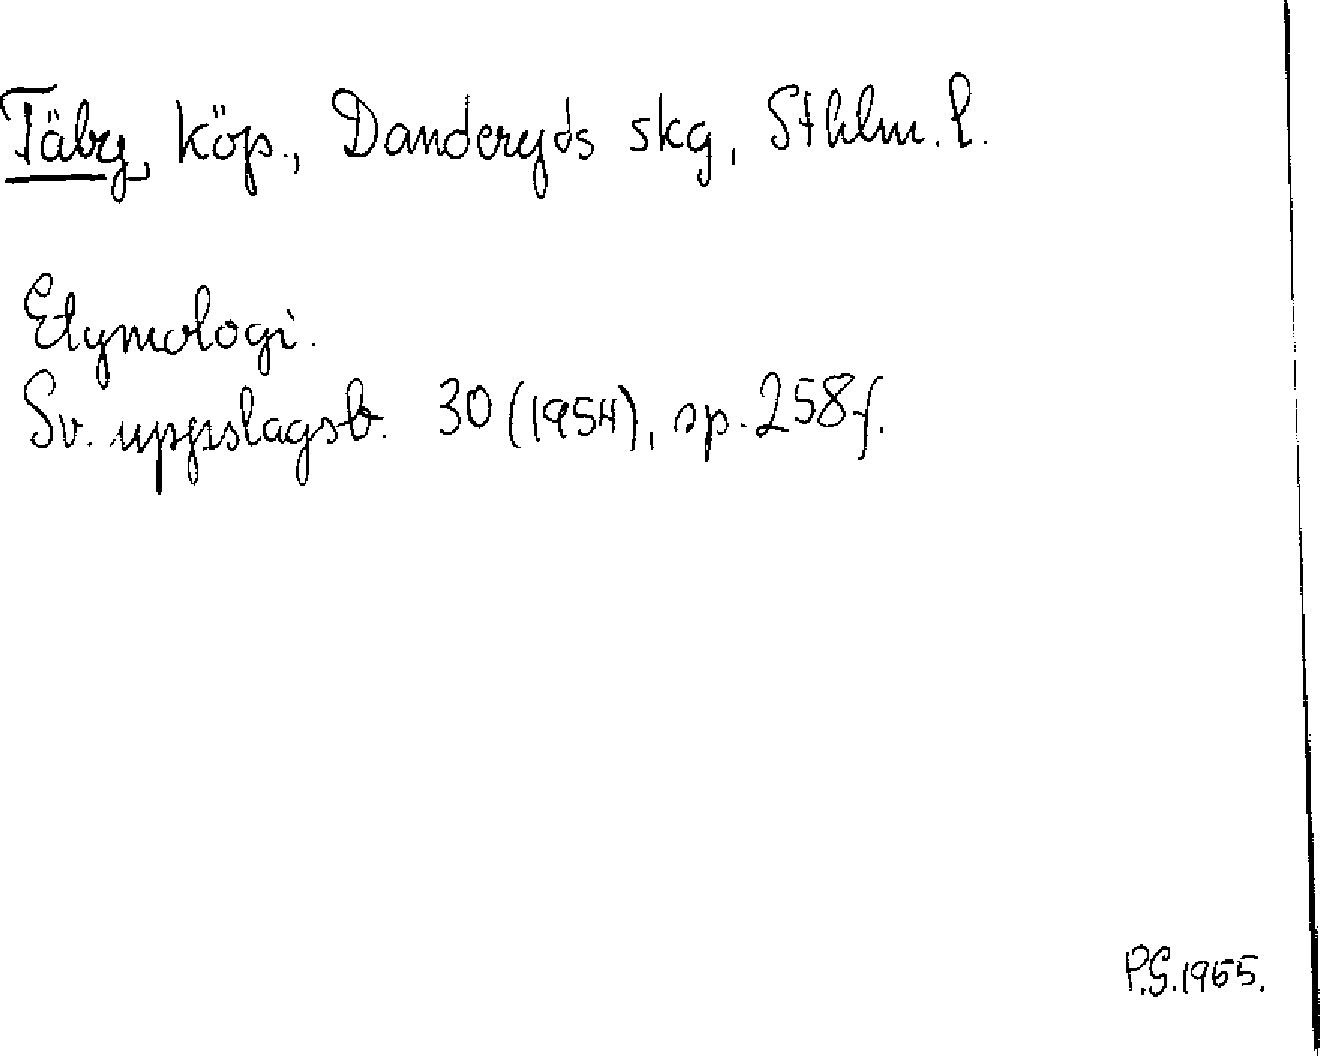 Täby, köp., Danderyds skg, Sthlm. l.
Etymologi.
Sv. uppslagsb. 30 (1954), sp. 258 f.
P.S. 1965.